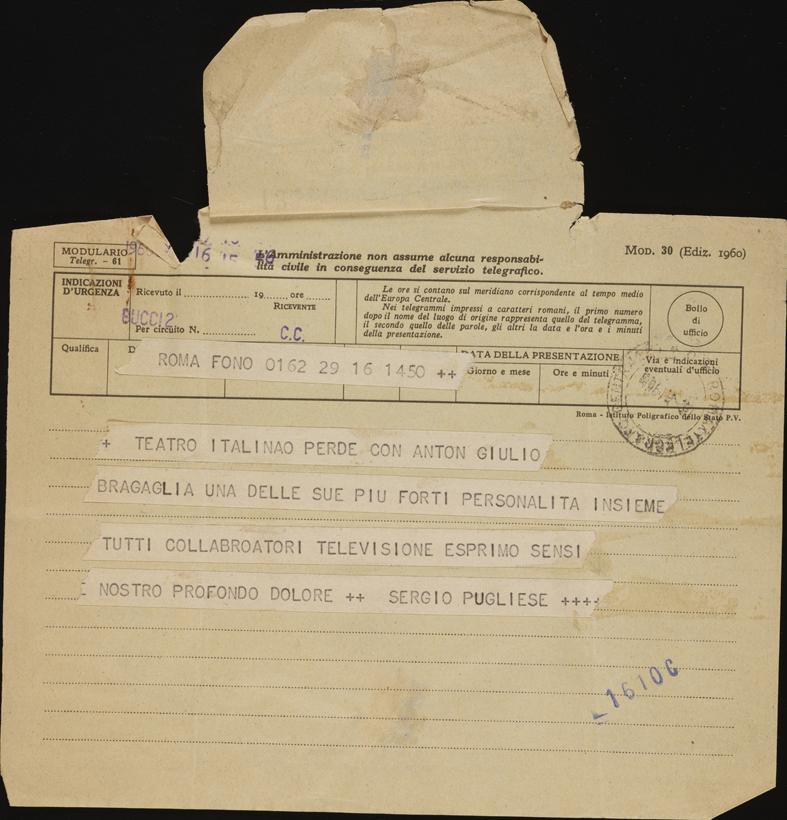 MODULARIO
Telegr. - 61
L'Amministrazione non assume alcuna responsabi-
lità civile in conseguenza del servizio telegrafico.
MOD. 30 (Ediz. 1960)
INDICAZIONI
D'URGENZA
Ricevuto il 19 ore
RICEVENTE
BUCCI2
Per circuito N. C.C.
Le ore si contano sul meridiano corrispondente al tempo medio
dell'Europa Centrale.
Nei telegrammi impressi a caratteri romani, il primo numero
dopo il nome del luogo di origine rappresenta quello del telegramma,
il secondo quello delle parole, gli altri la data e l'ora e i minuti
della presentazione.
Bollo
di
ufficio
Qualifica
DATA DELLA PRESENTAZIONE
Giorno e mese
Ore e minuti
Via e indicazioni
eventuali d'ufficio
ROMA FONO 0162 29 16 1450 ++
Roma - Istituto Poligrafico dello Stato P.V.
+ TEATRO ITALINAO PERDE CON ANTON GIULIO
BRAGAGLIA UNA DELLE SUE PIU FORTI PERSONALITA INSIEME
TUTTI COLLABROATORI TELEVISIONE ESPRIMO SENSI
E NOSTRO PROFONDO DOLORE ++ SERGIO PUGLIESE ++++